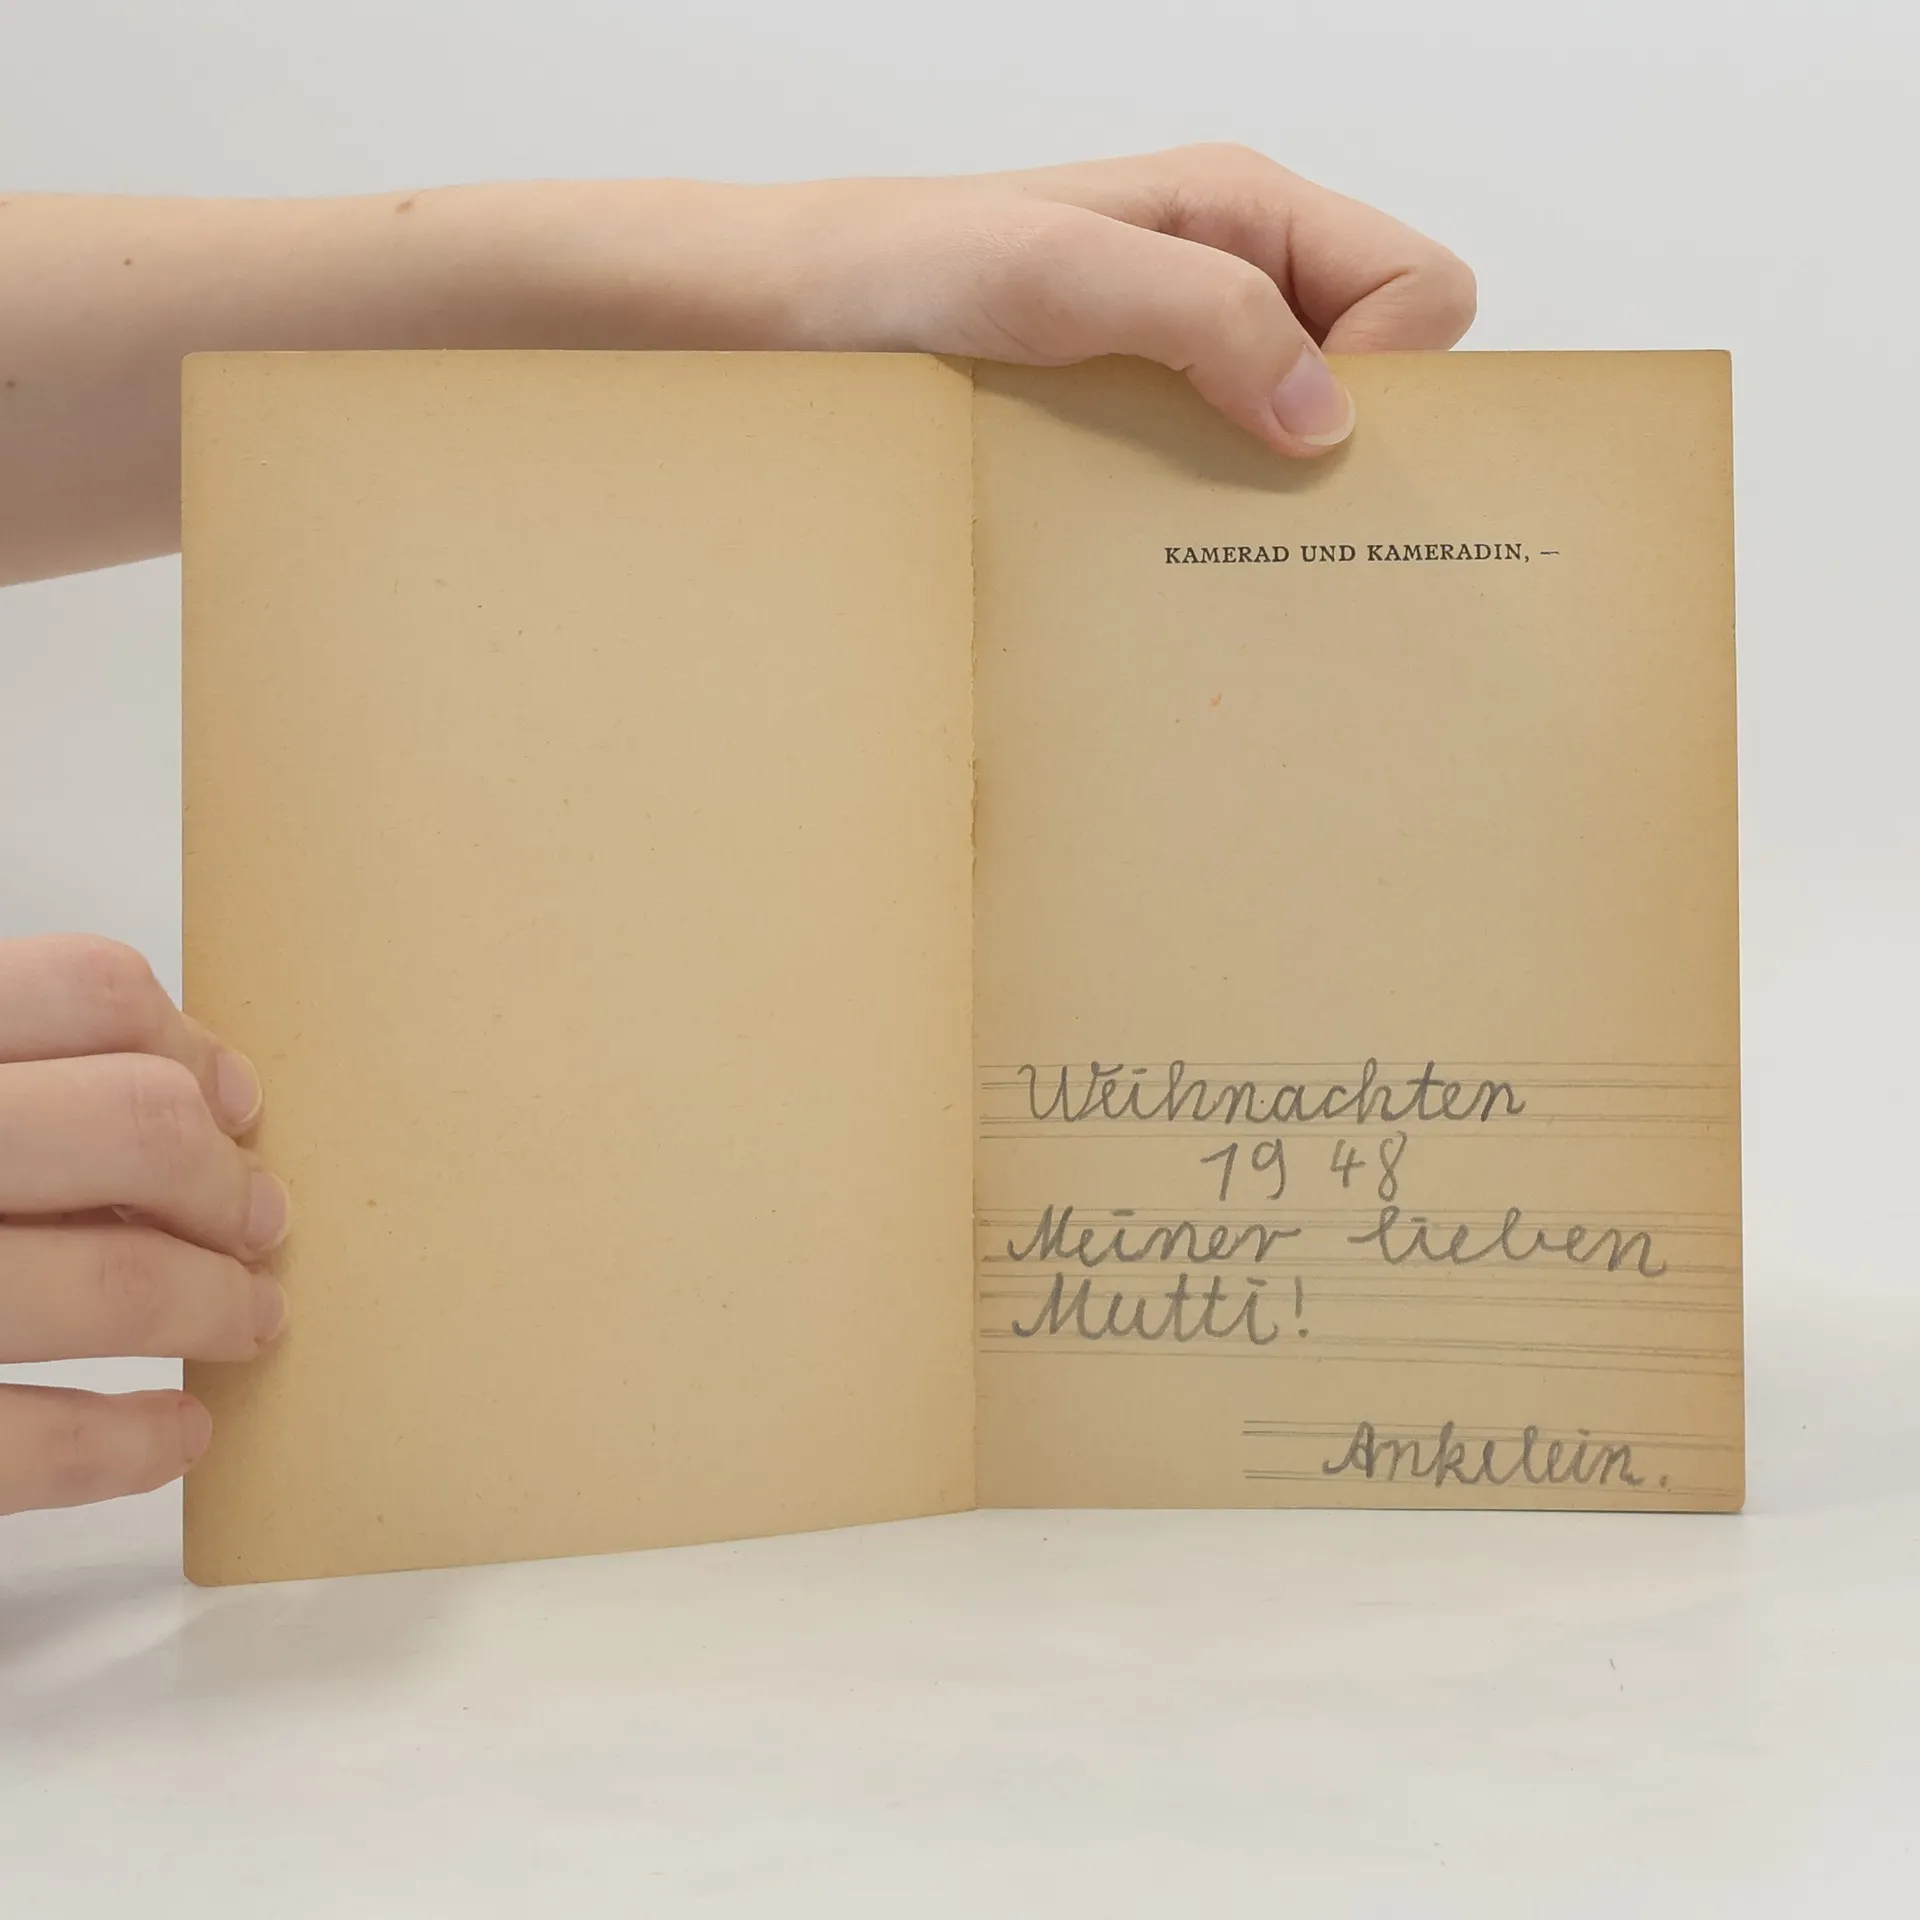 KAMERAD UND KAMERADIN, —
Weihnachten
1948
Meiner lieben
Mutti!
Ankelein.